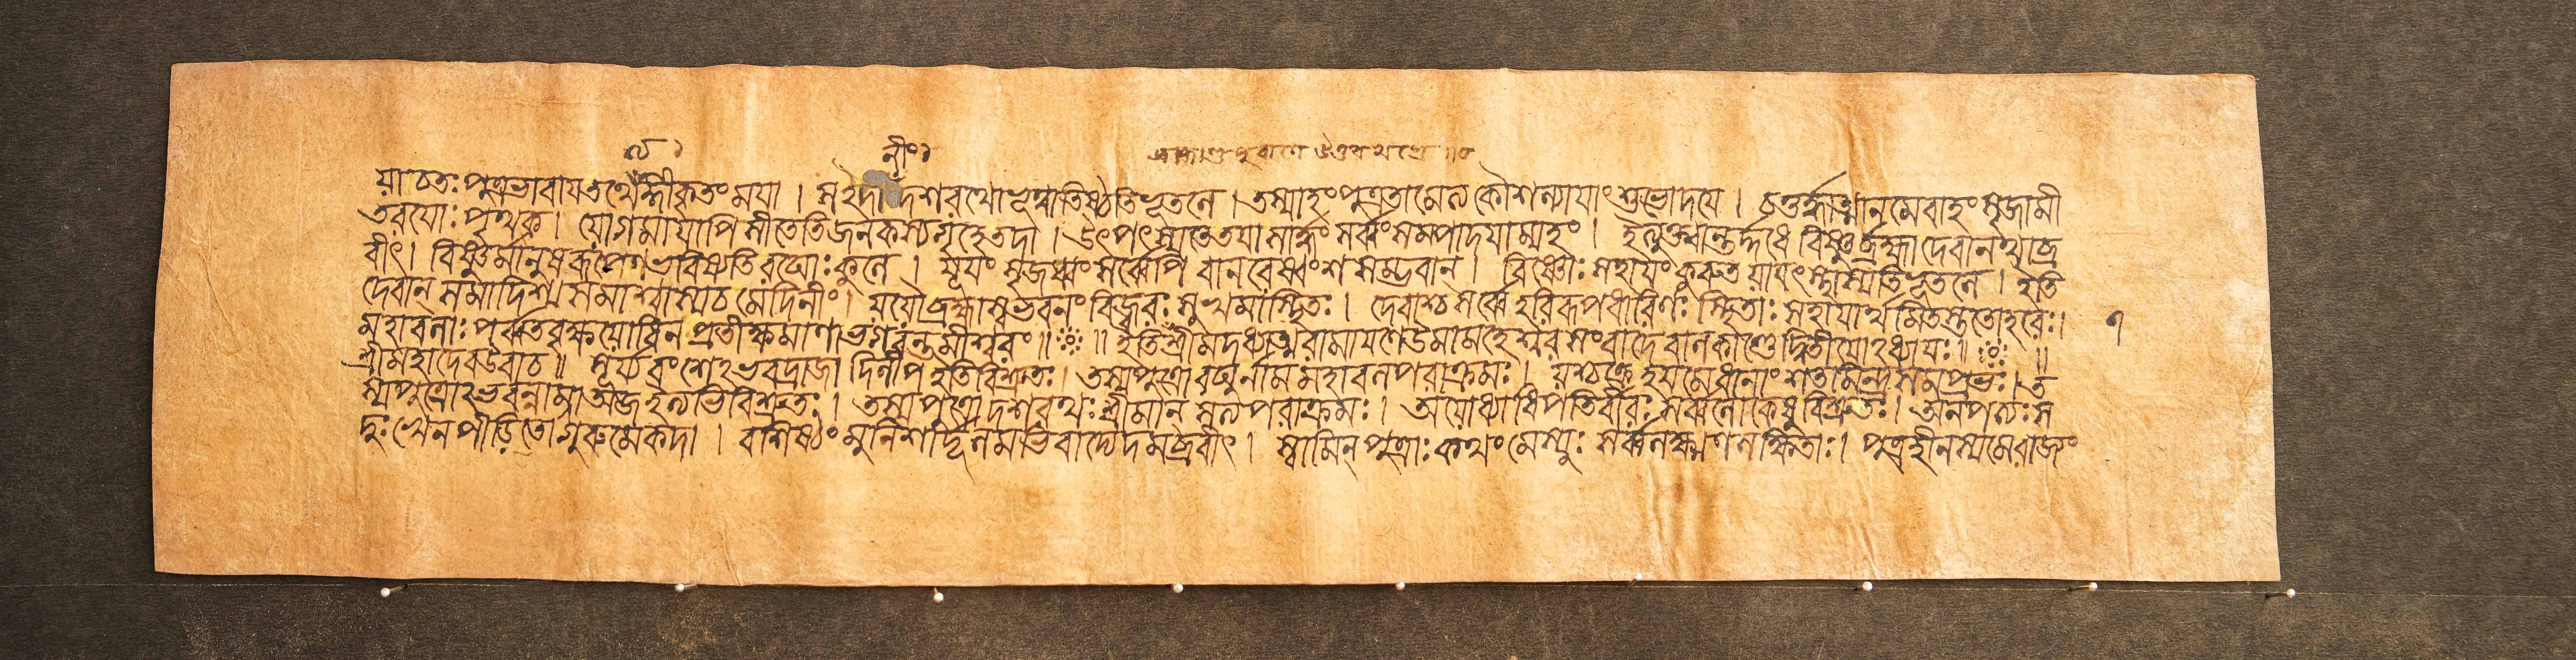 ब्रह्माण्डपुराणे উত্তরখণ্ডে ॥০
যাচতঃ পুত্রভাবায তথেত্যঙ্গীকৃতং ময়া । স ইদানীং দশরথো ভূত্বা তিষ্ঠতি ভূতলে । তস্যাহং পুত্রতামেত্য কৌশল্যাযাং শুভোদযে । চতুর্দ্ধাত্মানমেবাহং সৃজামী
তরযোঃ পৃথক্ । যোগমাযাপি সীতেতি জনকস্য গৃহে তদা । উৎপৎস্যতে তযা সার্দ্ধং সর্ব্বং সম্পাদযাম্যহং । ইত্যুক্ত্বান্তর্দ্দধে বিষ্ণুর্ব্রহ্মা দেবানথাব্র
বীৎ । বিষ্ণুর্মানুষরূপেণ ভবিষ্যতি রঘোঃ কুলে । যূযং সৃজধ্বং সর্ব্বেপি বানরেষ্বংশসম্ভবান্ । বিষ্ণোঃ সহাযং কুরুত যাবৎ স্থাস্যতি ভূতলে । ইতি
দেবান্ সমাদিশ্য সমাশ্বাস্য চ মেদিনীং । যযৌ ব্রহ্মা স্বভবনং বিজ্বরঃ সুখমাস্থিতঃ । দেবাশ্চ সর্ব্বে হরিরূপধারিণঃ স্থিতাঃ সহাযার্থমিতস্ততো হরেঃ ।
মহাবলাঃ পর্ব্বতবৃক্ষযোধিনঃ প্রতীক্ষমাণা ভগবন্তমীশ্বরং ॥ ইতি শ্রীমদধ্যাত্মরামাযণে উমামহেশ্বরসংবাদে বালকাণ্ডে দ্বিতীযোঽধ্যাযঃ ॥
শ্রীমহাদেব উবাচ ॥ সূর্য্যবংশেঽভবদ্রাজা দিলীপ ইতি বিশ্রুতঃ । তস্য পুত্রো রঘুর্নাম মহাবলপরাক্রমঃ । যশ্চক্রে হযমেধানাং শতমিন্দ্রসমপ্রভঃ । ত
স্য পুত্রোঽভবন্নাম্না অজ ইত্যভিবিশ্রুতঃ । তস্য পুত্রো দশরথঃ শ্রীমান্ সত্যপরাক্রমঃ । অযোধ্যাধিপতির্বীরঃ সর্ব্বলোকেষু বিশ্রুতঃ । অনপত্যঃ স
দুঃখেন পীড়িতো গুরুমেকদা । বশিষ্ঠং মুনিশার্দ্দূলমভিবাদ্যেদমব্রবীৎ । স্বামিন্ পুত্রাঃ কথং মে স্যুঃ সর্ব্বলক্ষণলক্ষিতাঃ । পুত্রহীনস্য মে রাজ্যং